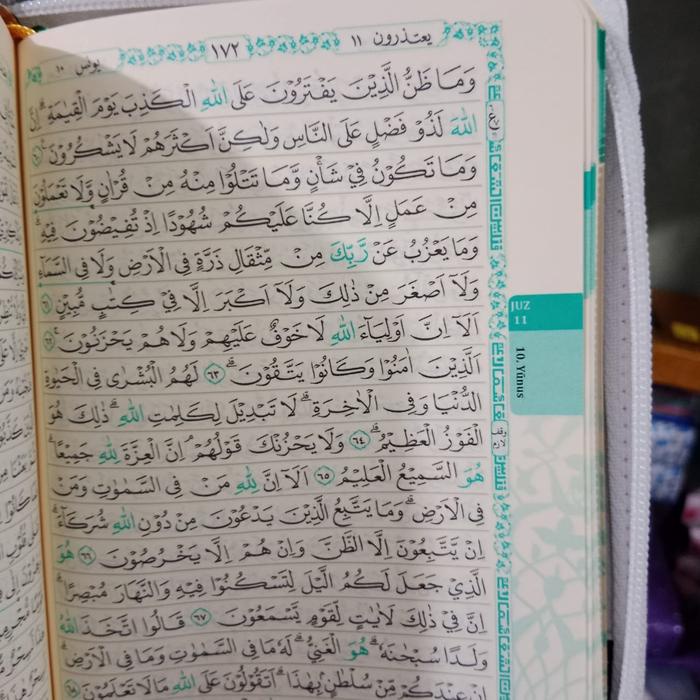 يعتذرون ١١
١٧٢
يونس ١٠
وَمَا ظَنُّ الَّذِيْنَ يَفْتَرُوْنَ عَلَى اللّٰهِ الْكَذِبَ يَوْمَ الْقِيٰمَةِ ۗ اِنَّ
اللّٰهَ لَذُوْ فَضْلٍ عَلَى النَّاسِ وَلٰكِنَّ اَكْثَرَهُمْ لَا يَشْكُرُوْنَ ٦٠
وَمَا تَكُوْنُ فِيْ شَأْنٍ وَّمَا تَتْلُوْا مِنْهُ مِنْ قُرْاٰنٍ وَّلَا تَعْمَلُوْنَ
مِنْ عَمَلٍ اِلَّا كُنَّا عَلَيْكُمْ شُهُوْدًا اِذْ تُفِيْضُوْنَ فِيْهِ ۗ
وَمَا يَعْزُبُ عَنْ رَّبِّكَ مِنْ مِّثْقَالِ ذَرَّةٍ فِى الْاَرْضِ وَلَا فِى السَّمَاۤءِ
وَلَآ اَصْغَرَ مِنْ ذٰلِكَ وَلَآ اَكْبَرَ اِلَّا فِيْ كِتٰبٍ مُّبِيْنٍ ٦١
اَلَآ اِنَّ اَوْلِيَاۤءَ اللّٰهِ لَا خَوْفٌ عَلَيْهِمْ وَلَا هُمْ يَحْزَنُوْنَ ۚ ٦٢
الَّذِيْنَ اٰمَنُوْا وَكَانُوْا يَتَّقُوْنَ ۗ ٦٣ لَهُمُ الْبُشْرٰى فِى الْحَيٰوةِ
الدُّنْيَا وَفِى الْاٰخِرَةِ ۗ لَا تَبْدِيْلَ لِكَلِمٰتِ اللّٰهِ ۗ ذٰلِكَ هُوَ
الْفَوْزُ الْعَظِيْمُ ۗ ٦٤ وَلَا يَحْزُنْكَ قَوْلُهُمْ ۘ اِنَّ الْعِزَّةَ لِلّٰهِ جَمِيْعًا ۗ
هُوَ السَّمِيْعُ الْعَلِيْمُ ٦٥ اَلَآ اِنَّ لِلّٰهِ مَنْ فِى السَّمٰوٰتِ وَمَنْ
فِى الْاَرْضِ ۗ وَمَا يَتَّبِعُ الَّذِيْنَ يَدْعُوْنَ مِنْ دُوْنِ اللّٰهِ شُرَكَاۤءَ ۗ
اِنْ يَّتَّبِعُوْنَ اِلَّا الظَّنَّ وَاِنْ هُمْ اِلَّا يَخْرُصُوْنَ ٦٦ هُوَ
الَّذِيْ جَعَلَ لَكُمُ الَّيْلَ لِتَسْكُنُوْا فِيْهِ وَالنَّهَارَ مُبْصِرًا ۗ
اِنَّ فِيْ ذٰلِكَ لَاٰيٰتٍ لِّقَوْمٍ يَّسْمَعُوْنَ ٦٧ قَالُوا اتَّخَذَ اللّٰهُ
وَلَدًا سُبْحٰنَهٗ ۗ هُوَ الْغَنِيُّ ۗ لَهٗ مَا فِى السَّمٰوٰتِ وَمَا فِى الْاَرْضِ ۗ
اِنْ عِنْدَكُمْ مِّنْ سُلْطٰنٍۢ بِهٰذَا ۗ اَتَقُوْلُوْنَ عَلَى اللّٰهِ مَا لَا تَعْلَمُوْنَ ٦٨
JUZ
11
10. Yūnus